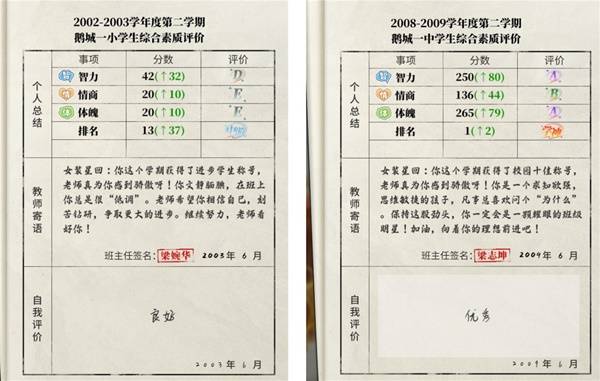 2002-2003学年度第二学期
鹅城一小学生综合素质评价
事项 分数 评价
个人总结
智 智力 42(↑32) D
情 情商 20(↑10) E
体 体魄 20(↑10) E
排名 13(↑37) 中游
教师寄语
女装星回:你这个学期获得了进步学生称号,
老师真为你感到骄傲呀!你文静腼腆,在班上
你总是很“低调”。老师希望你相信自已,刻
苦钻研,争取更大的进步。继续努力,老师看
好你!
班主任签名: 梁婉华 2003年 6 月
自我评价
良好
2003年 6 月
2008-2009学年度第二学期
鹅城一中学生综合素质评价
事项 分数 评价
个人总结
智 智力 250(↑80) A
情 情商 136(↑44) B
体 体魄 265(↑79) A
排名 1(↑2) 学霸
教师寄语
女装星回:你这个学期获得了校园十佳称号,
老师真为你感到骄傲呀!你是一个求知欲强,
思维敏捷的孩子,凡事总喜欢问个“为什么”
。保持这股劲头,你一定会是一颗耀眼的班级
明星!加油,向着你的理想前进吧!
班主任签名: 梁志坤 2009年 6 月
自我评价
优秀
2009年 6 月